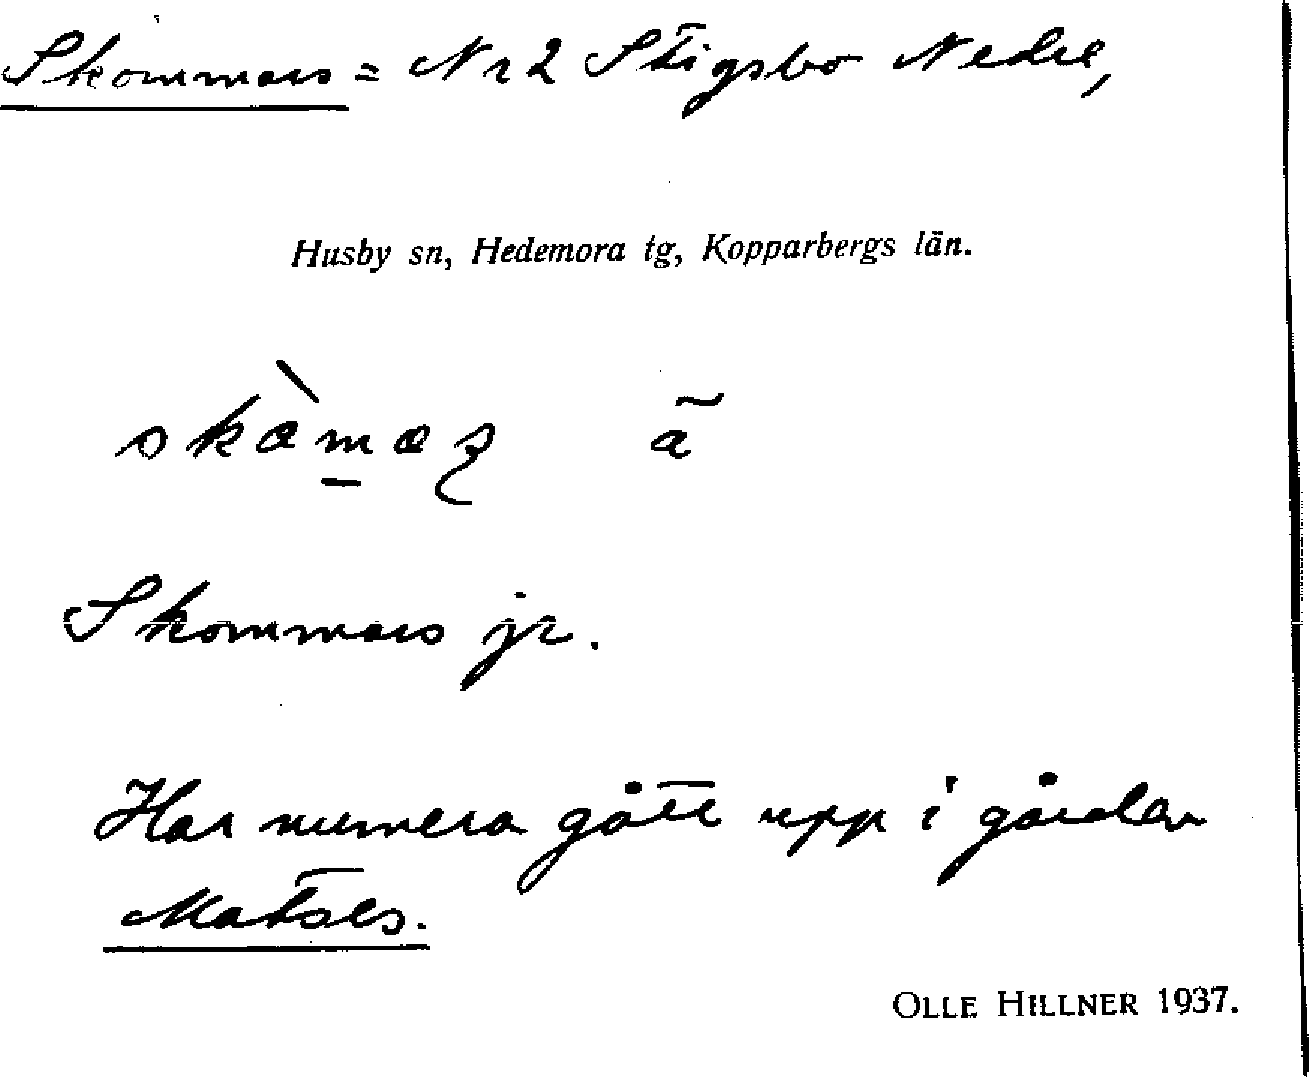 Skommars = Nr 2 Stigsbo Nedre,
Husby sn, Hedemora tg, Kopparbergs län.
Skommars jr.
Har numera gått upp i gården
Matses.
OLLE HILLNER 1937.